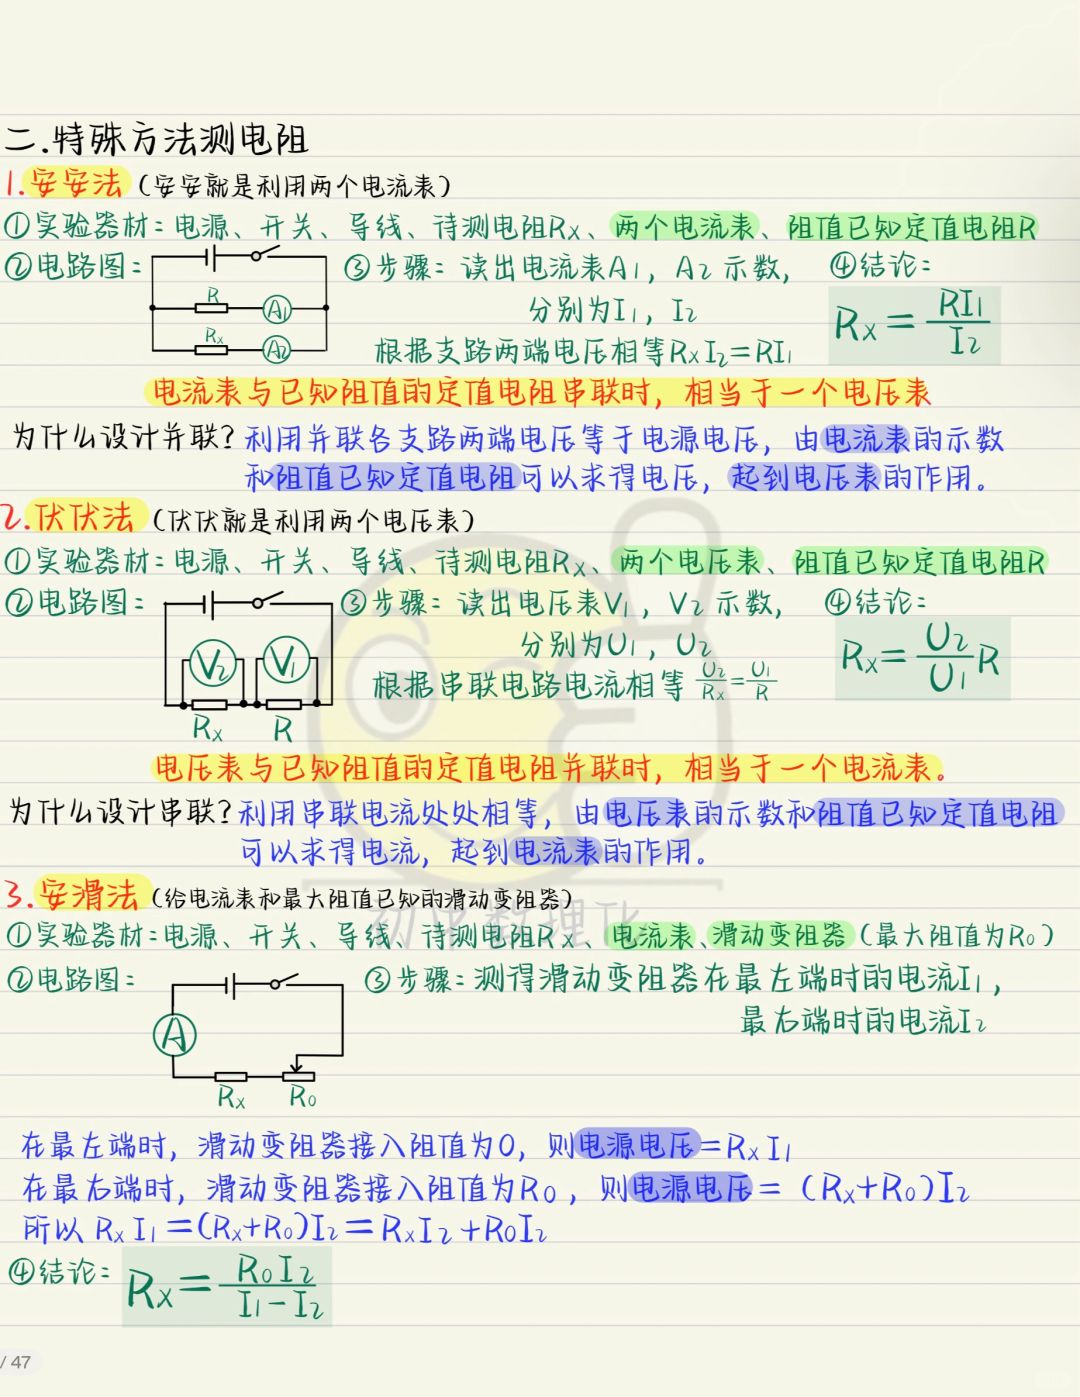 二.特殊方法测电阻
1.安安法(安安就是利用两个电流表)
①实验器材:电源、开关、导线、待测电阻Rx、两个电流表、阻值已知定值电阻R
②电路图:
R
A1
Rx
A2
③步骤:读出电流表A1,A2示数,
分别为I1,I2
根据支路两端电压相等RxI2=RI1
④结论:
Rx=RI1/I2
电流表与已知阻值的定值电阻串联时,相当于一个电压表
为什么设计并联?利用并联各支路两端电压等于电源电压,由电流表的示数
和阻值已知定值电阻可以求得电压,起到电压表的作用。
2.伏伏法(伏伏就是利用两个电压表)
①实验器材:电源、开关、导线、待测电阻Rx、两个电压表、阻值已知定值电阻R
②电路图:
V2 V1
Rx R
③步骤:读出电压表V1,V2示数,
分别为U1,U2
根据串联电路电流相等 U2/Rx=U1/R
④结论:
Rx=U2/U1 R
电压表与已知阻值的定值电阻并联时,相当于一个电流表。
为什么设计串联?利用串联电流处处相等,由电压表的示数和阻值已知定值电阻
可以求得电流,起到电流表的作用。
3.安滑法(给电流表和最大阻值已知的滑动变阻器)
初中数理化
①实验器材:电源、开关、导线、待测电阻Rx、电流表、滑动变阻器(最大阻值为R0)
②电路图:
A
Rx R0
③步骤:测得滑动变阻器在最左端时的电流I1,
最右端时的电流I2
在最左端时,滑动变阻器接入阻值为0,则电源电压=RxI1
在最右端时,滑动变阻器接入阻值为R0,则电源电压=(Rx+R0)I2
所以RxI1=(Rx+R0)I2=RxI2+R0I2
④结论:Rx=R0I2/I1-I2
/ 47